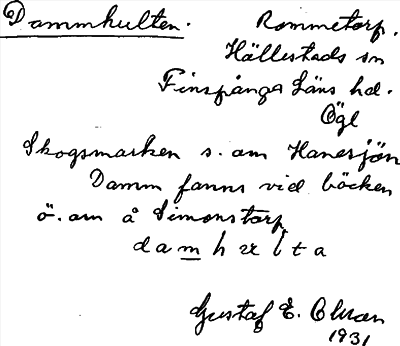 Dammhulten. Rommetorp.
Hällestads sn
Finspånga Läns hd.
Ögl
Skogsmarken s. om Hanersjön
Damm fanns vid bäcken
ö. om å Simonstorp
Gustaf E.
1931